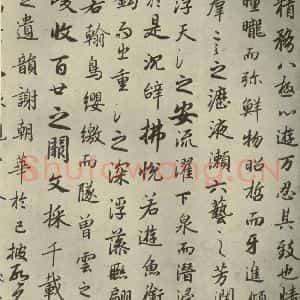 精務八极心遊万忍其致也情
瞳曨而弥鮮物昭晢而牙進傾
群言之瀝液瀨六藝之芳潤
浮天淵之安流濯下泉而潛浸
於是沉辝拂悅若遊魚銜
鈎而出重淵之深浮藻聯翩
若翰鳥纓繳而墜曾雲之
峻收百世之闕文採千載
之遺韻謝朝華於已披啟夕
Shufawang.CN